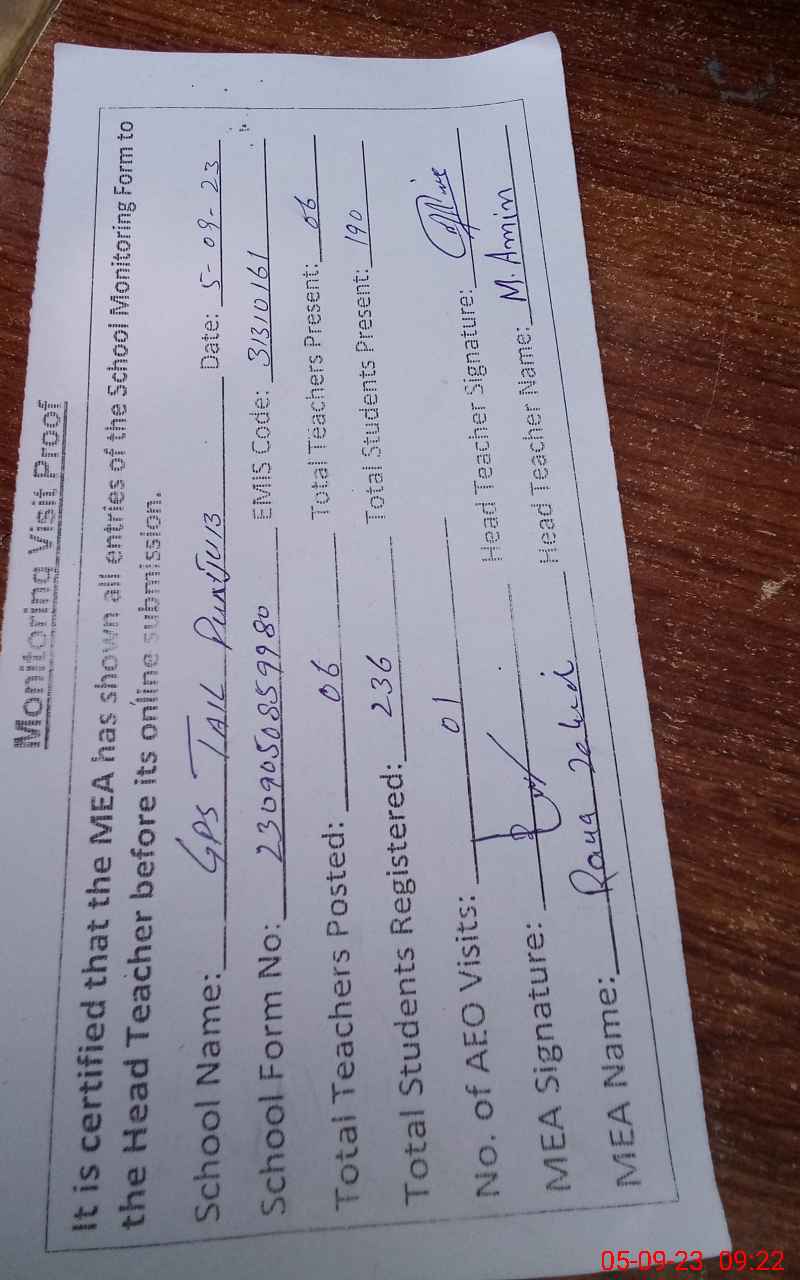 Monitoring Visit Proof
It is certified that the MEA has shown all entries of the School Monitoring Form to
the Head Teacher before its online submission.
School Name: GPS TAIL Date: 5-09-23
School Form No: 2309050859980 EMIS Code: 31310161
Total Teachers Posted: 06 Total Teachers Present: 06
Total Students Registered: 236 Total Students Present: 190
No. of AEO Visits: 01 Head Teacher Signature:
MEA Signature: Head Teacher Name: M. Amin
MEA Name: Rana Zahid
05-09-23 09:22